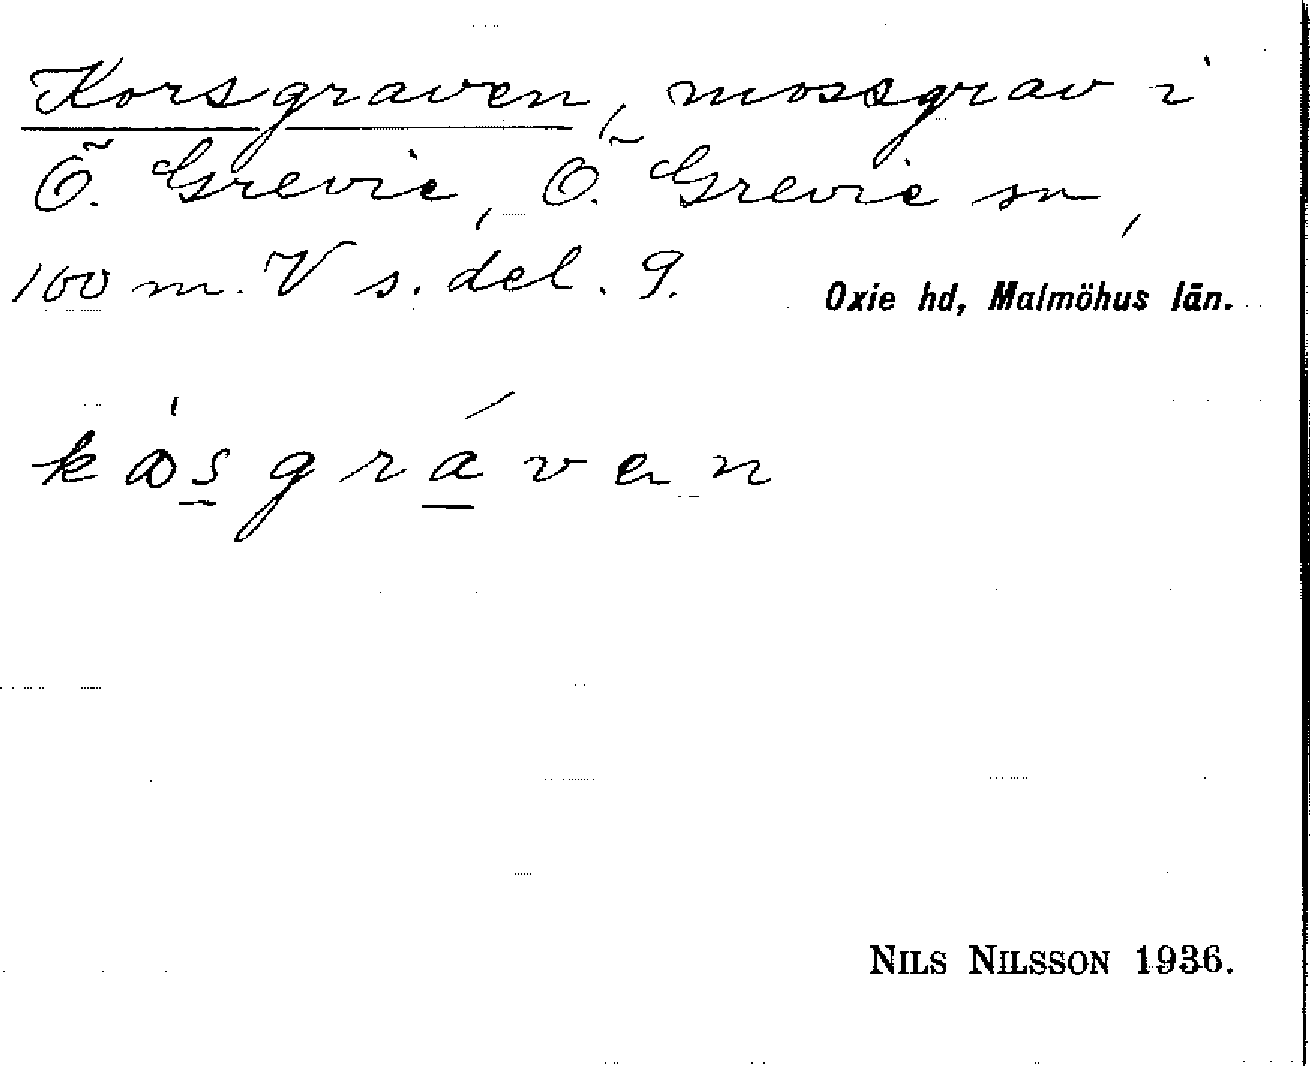 Korsgraven, mossgrav i
Ö. Grevie, Ö. Grevie sn,
100 m. V s. del. 9. Oxie hd, Malmöhus län.
NILS NILSSON 1936.